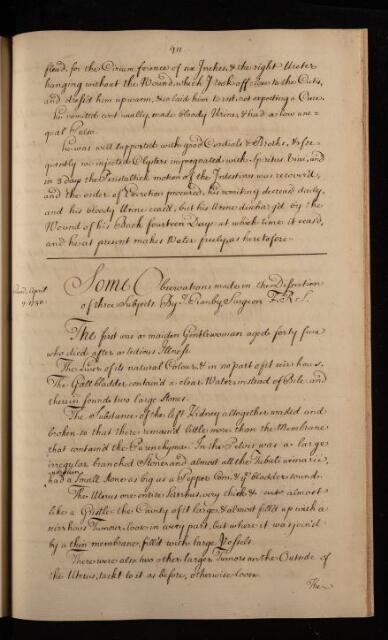 411
flead. for the Circumference of six Inches, & the right Ureter
hanging without the Wound, which I took off close to the Cutis,
and dress'd him up warm, & so laid him to rest, not expecting a Cure.
he vomitted continually, made bloody Urine, & had a low une-
qual Pulse.
he was well supported with good Cordials & Broths, & fre-
quently we injected Clysters impregnated with Spiritus Vini, and
in 3 days the Peristaltick motion of the Intestines was recover'd,
and the order of Excretion procured, his vomiting decreas'd daily,
and his bloody Urine ceas'd, but his Urine discharg'd by the
Wound of his Back fourteen Days at which time it ceas'd,
and he at present makes Water freely as heretofore
Some Observations made in the Dissection
of three Subjects. By Ranby Surgeon F.R.S.
Read April
9. 1730.
The first was a maiden Gentlewoman aged forty five
who died after a tedious Illness.
The Liver of its natural Colour, & in no part of it scirrhous.
The Gall bladder contain'd a clear Water instead of Bile and
therein found two large Stones.
The Substance of the left Kidney altogether wasted and
broken so that there remain'd little more than the Membrane
that contain'd the Parenchyma. In the Pelvis was a large
irregular branched Stone and almost all the Tubuli urinarii
had a small stone as big as a Pepper Corn, & yᵉ bladder sound.
The Uterus one entire Scirrhus, very thick & cut almost
like a Gristle, the Cavity of it large, & almost fill'd up with a
scirrhous Tumour, loose in every part, but where it was join'd
by a thin membrane, fill'd with large Vessels.
There were also two other large Tumors on the Outside of
the Uterus, tack't to it as before, otherwise loose
The